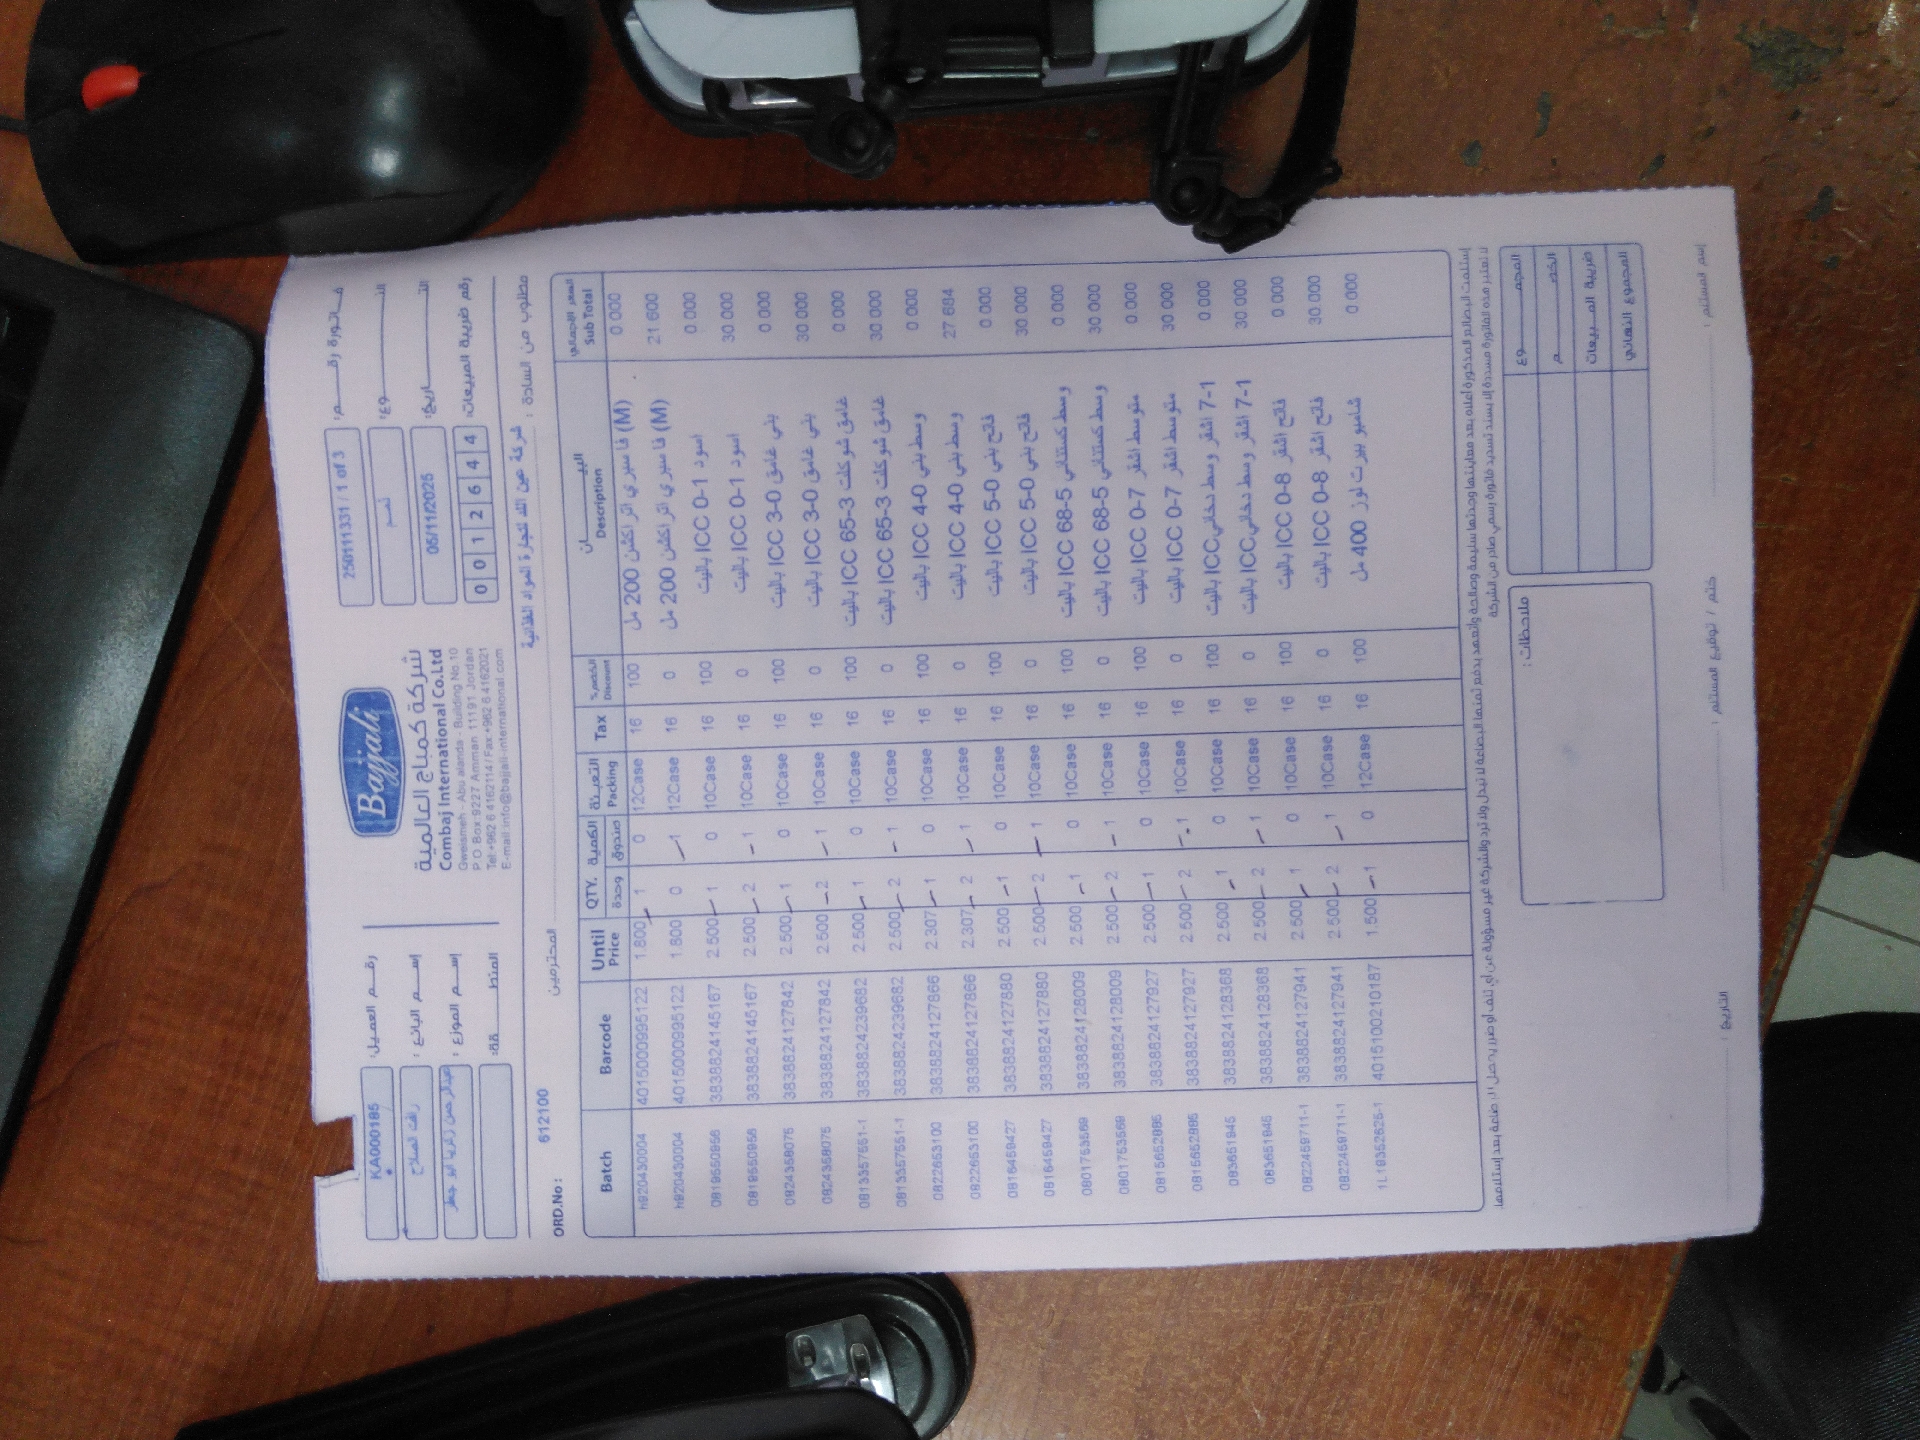 Bajjali
شركة كمباج العالمية
Combaj International Co.Ltd
Gweismeh - Abu alanda - Building No.10
P.O Box 9227 Amman 11191 Jordan
Tel:+962 6 4162114 / Fax:+962 6 4162021
E-mail:info@bajjali-international.com
فاتورة رقم: 250111331 / 1 of 3
النوع:
التاريخ: 06/11/2025
رقم ضريبة المبيعات: 0 0 1 2 6 4 4
رقم العميل: KA000185
إسم البائع:
إسم الموزع:
المنطقة:
مطلوب من السادة : شركة عين الله لتجارة المواد الغذائية المحترمين
ORD.No : 612100
Batch Barcode Until Price QTY. الكمية وحدة صندوق التعبئة Packing Tax الخصم% Discount البيان Description السعر الإجمالي Sub Total
h920430004 4015000995122 1.800 1 0 12Case 16 100 200 مل (M) 0 000
h920430004 4015000995122 1.800 0 1 12Case 16 0 200 مل (M) 21 600
0819550956 3838824145167 2.500 1 0 10Case 16 100 باليت ICC 0-1 اسود 0 000
0819550956 3838824145167 2.500 2 1 10Case 16 0 باليت ICC 0-1 اسود 30 000
0824358075 3838824127842 2.500 1 0 10Case 16 100 باليت ICC 3-0 بني غامق 0 000
0824358075 3838824127842 2.500 2 1 10Case 16 0 باليت ICC 3-0 بني غامق 30 000
0813357551-1 3838824239682 2.500 1 0 10Case 16 100 باليت ICC 65-3 غامق شوكلت 0 000
0813357551-1 3838824239682 2.500 2 1 10Case 16 0 باليت ICC 65-3 غامق شوكلت 30 000
0822653100 3838824127866 2.307 1 0 10Case 16 100 باليت ICC 4-0 وسط بني 0 000
0822653100 3838824127866 2.307 2 1 10Case 16 0 باليت ICC 4-0 وسط بني 27 684
0816459427 3838824127880 2.500 1 0 10Case 16 100 باليت ICC 5-0 فاتح بني 0 000
0816459427 3838824127880 2.500 2 1 10Case 16 0 باليت ICC 5-0 فاتح بني 30 000
0801753569 3838824128009 2.500 1 0 10Case 16 100 باليت ICC 68-5 وسط كستنائي 0 000
0801753569 3838824128009 2.500 2 1 10Case 16 0 باليت ICC 68-5 وسط كستنائي 30 000
0815652885 3838824127927 2.500 1 0 10Case 16 100 باليت ICC 0-7 متوسط اشقر 0 000
0815652885 3838824127927 2.500 2 1 10Case 16 0 باليت ICC 0-7 متوسط اشقر 30 000
083651945 3838824128368 2.500 1 0 10Case 16 100 باليت ICC 7-1 اشقر وسط دخاني 0 000
083651945 3838824128368 2.500 2 1 10Case 16 0 باليت ICC 7-1 اشقر وسط دخاني 30 000
0822459711-1 3838824127941 2.500 1 0 10Case 16 100 باليت ICC 0-8 فاتح اشقر 0 000
0822459711-1 3838824127941 2.500 2 1 10Case 16 0 باليت ICC 0-8 فاتح اشقر 30 000
1L19352625-1 4015100210187 1.500 1 0 12Case 16 100 شامبو بيرت لوز 400 مل 0 000
ملاحظات :
المجموع
الخصم
ضريبة المبيعات
المجموع النهائي
إسم المستلم :
ختم / توقيع المستلم :
التاريخ :